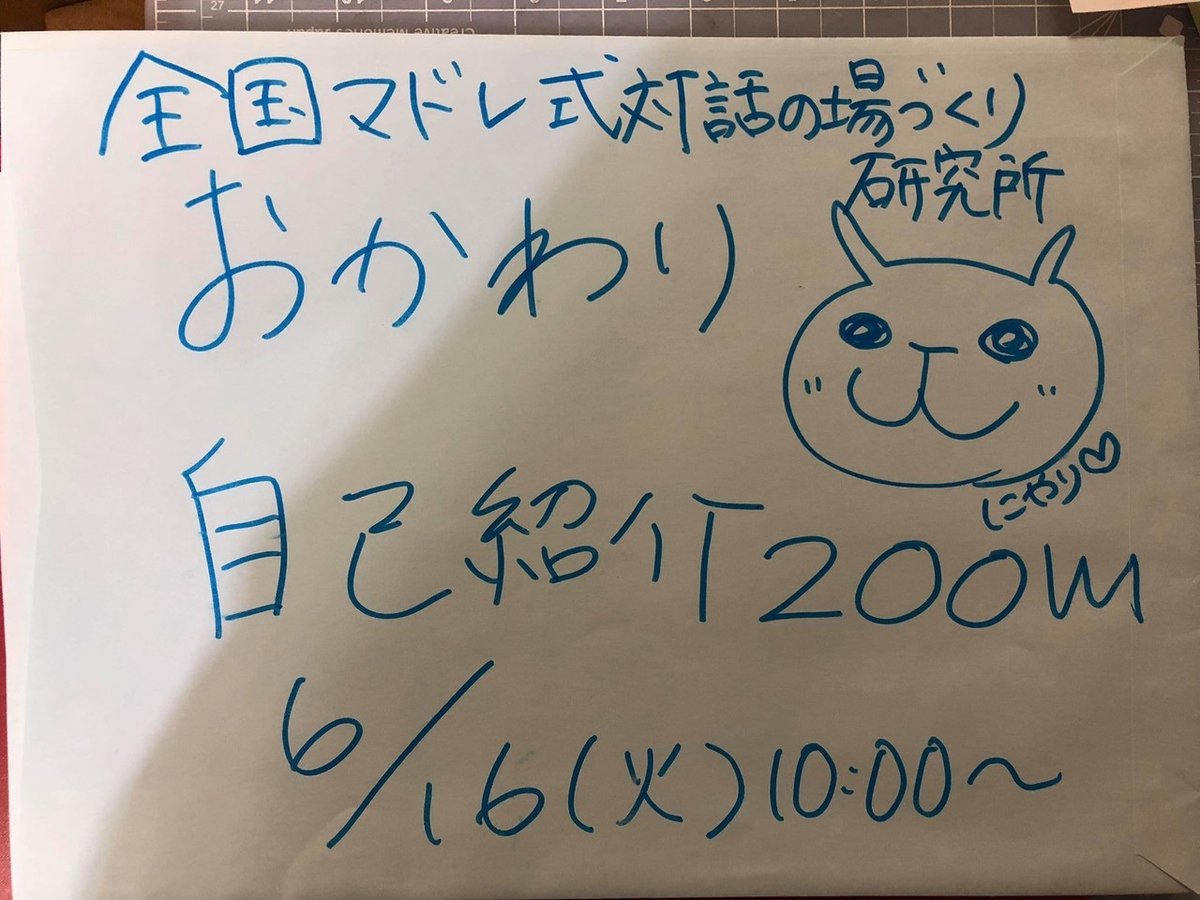 全国マドレ式対話の場づくり
研究所
おかわり
にやり♡
自己紹介200m
6/16(火)10:00〜
27
Creative Memories Japan